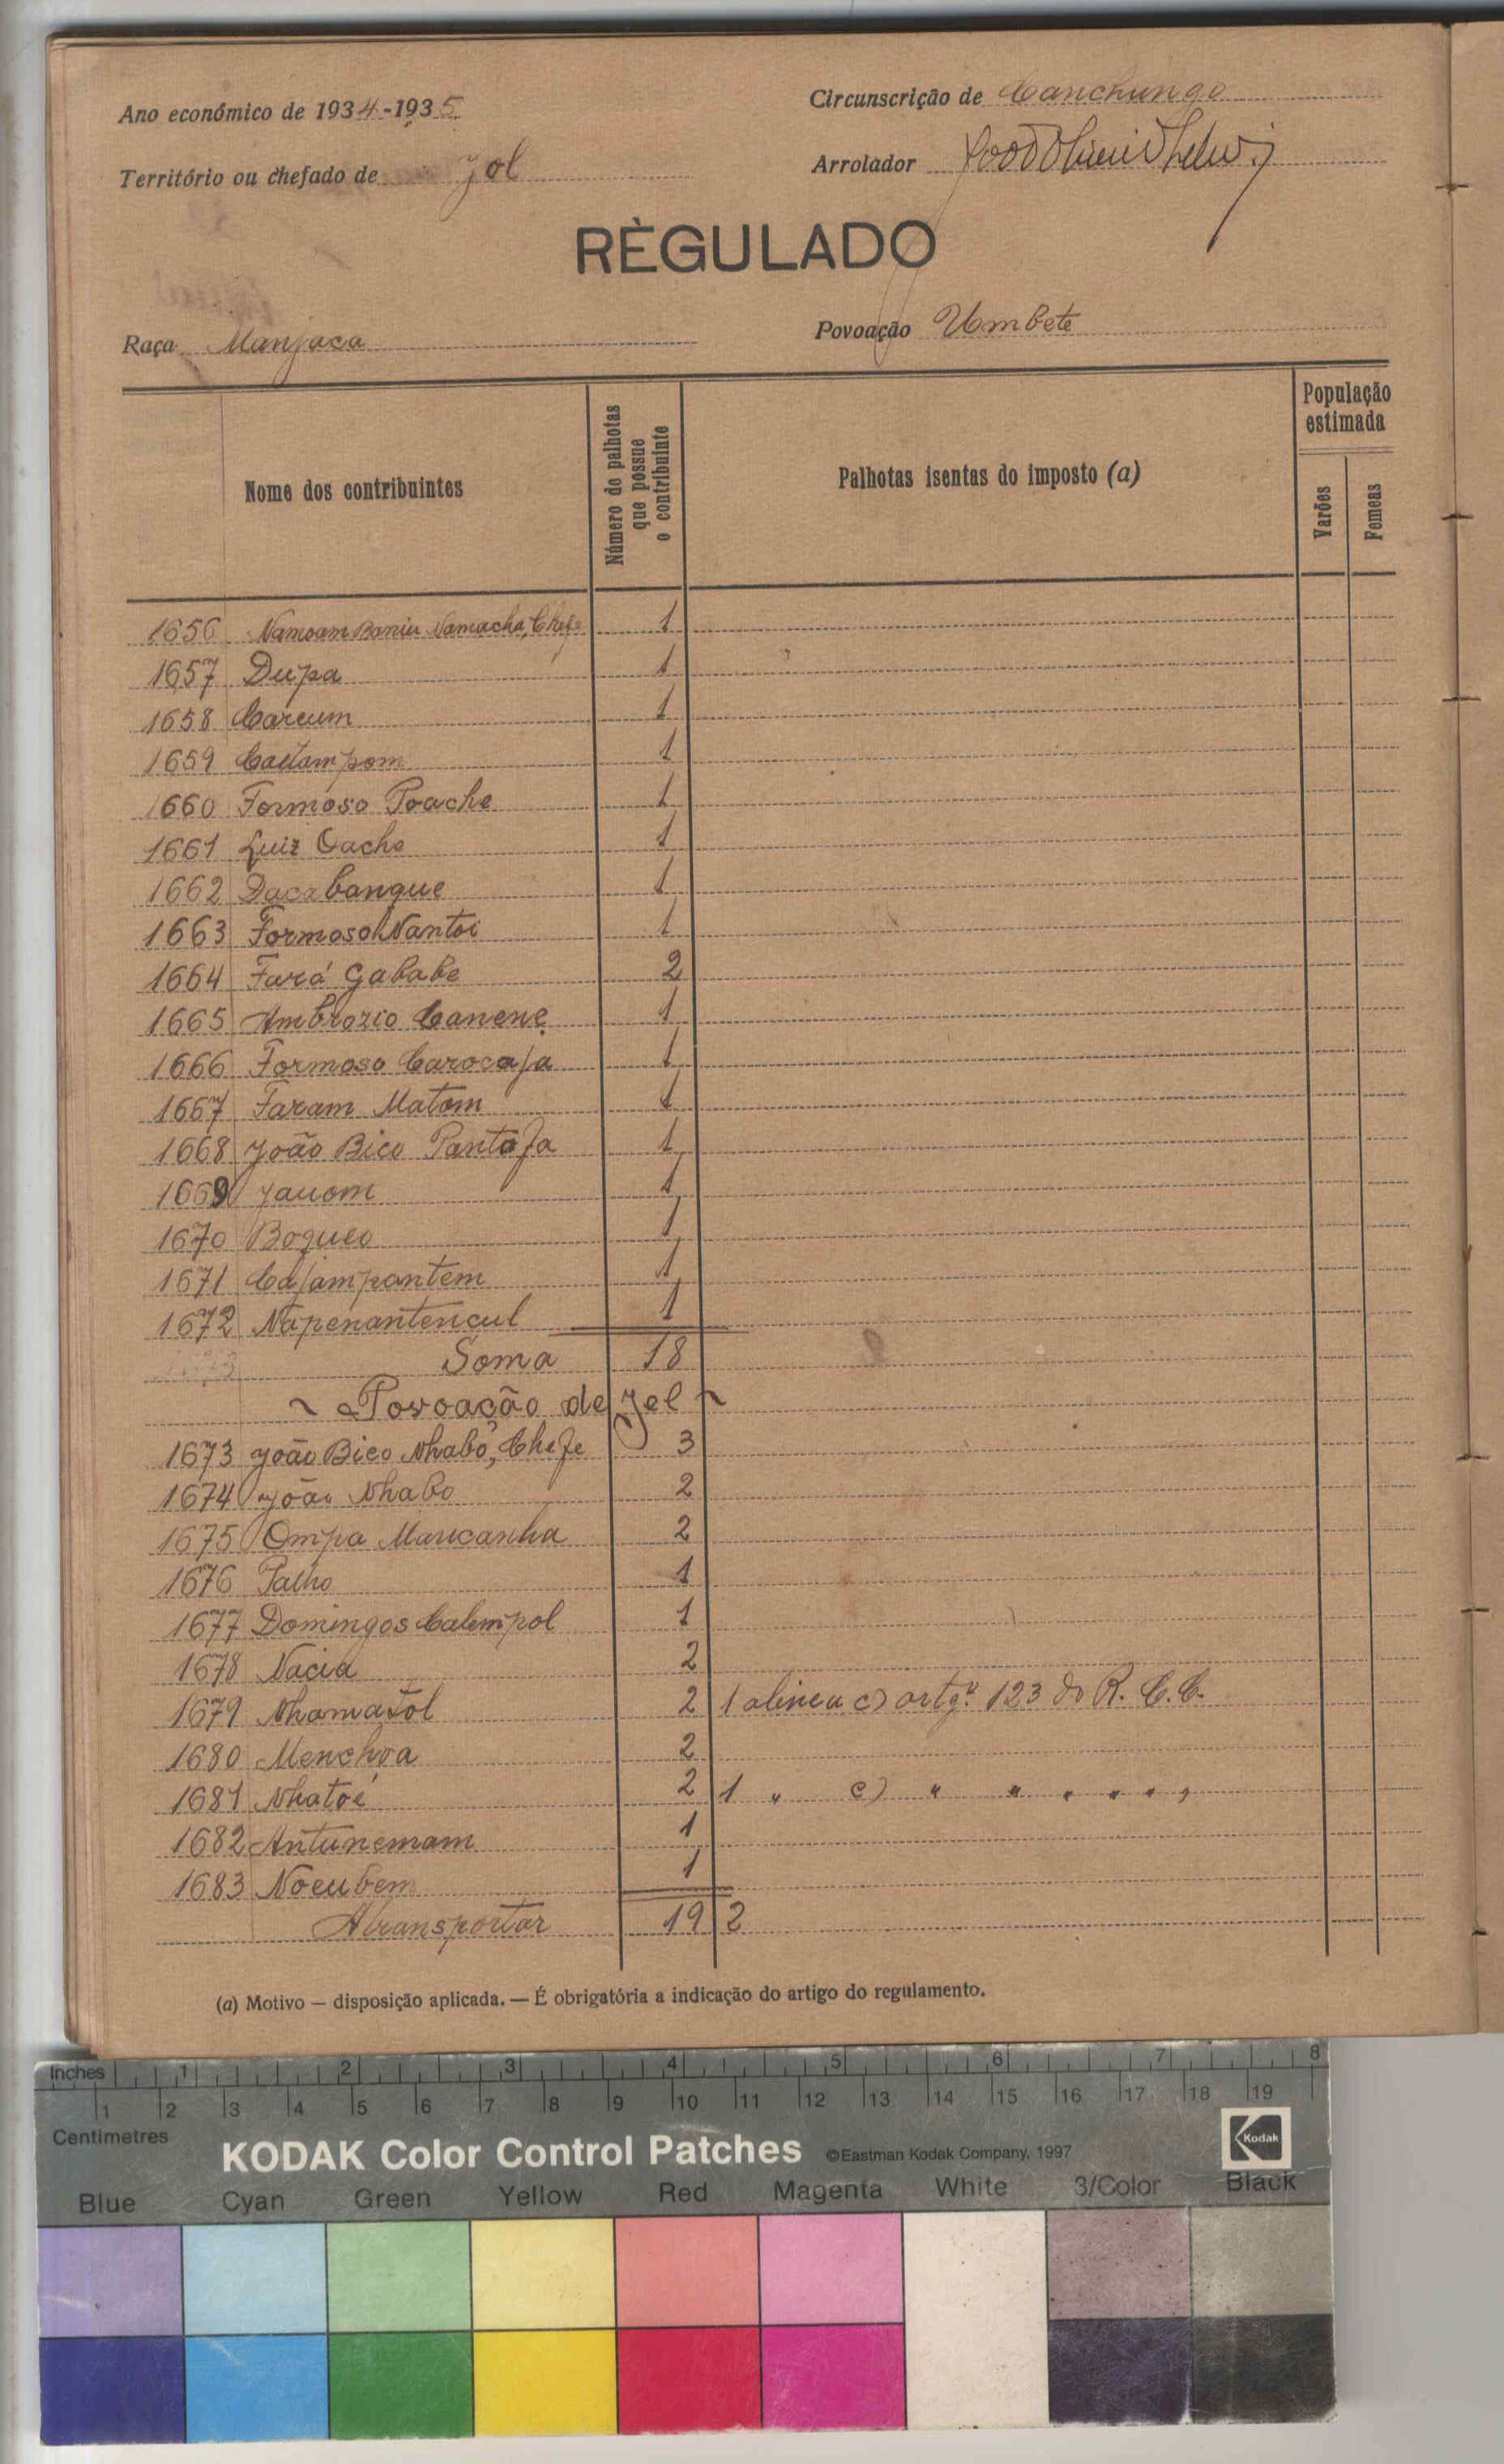 Ano económico de 1934-1935
Circunscrição de Canchungo
Território ou chefado de Jol
Arrolador
RÈGULADO
Raça Manjaca
Povoação Umbete
Nome dos contribuintes
Número de palhotas que possue o contribuinte
Palhotas isentas do imposto (a)
População estimada
Varões
Femeas
1656 Namoam Baniu Namacha, Chefe 1
1657 Dupa 1
1658 Carcum 1
1659 Caetampom 1
1660 Formoso Poache 1
1661 Luiz Cacho 1
1662 Dacabanque 1
1663 Formoso Nantoi 1
1664 Fará Gababe 2
1665 Ambrozio Canene 1
1666 Formoso Carocaja 1
1667 Faram Matom 1
1668 João Bico Pantofa 1
1669 Jauom 1
1670 Boqueo 1
1671 Cajampantem 1
1672 Napenantencul 1
Soma 18
~ Povoação de Jel ~
1673 João Bico Nhabó, Chefe 3
1674 João Nhabo 2
1675 Ompa Maricanha 2
1676 Palho 1
1677 Domingos Calempol 1
1678 Nacia 2
1679 Nhamatol 2 1 alinea c) artgº 123 do R. C. C.
1680 Menchoa 2
1681 Nhatoé 2 1 " c) " " " " " "
1682 Antunemam 1
1683 Noeubem 1
A transportar 19 2
(a) Motivo — disposição aplicada. — É obrigatória a indicação do artigo do regulamento.
Inches 1 2 3 4 5 6 7 8
1 2 3 4 5 6 7 8 9 10 11 12 13 14 15 16 17 18 19
Centimetres
KODAK Color Control Patches ©Eastman Kodak Company, 1997 Kodak
Blue Cyan Green Yellow Red Magenta White 3/Color Black